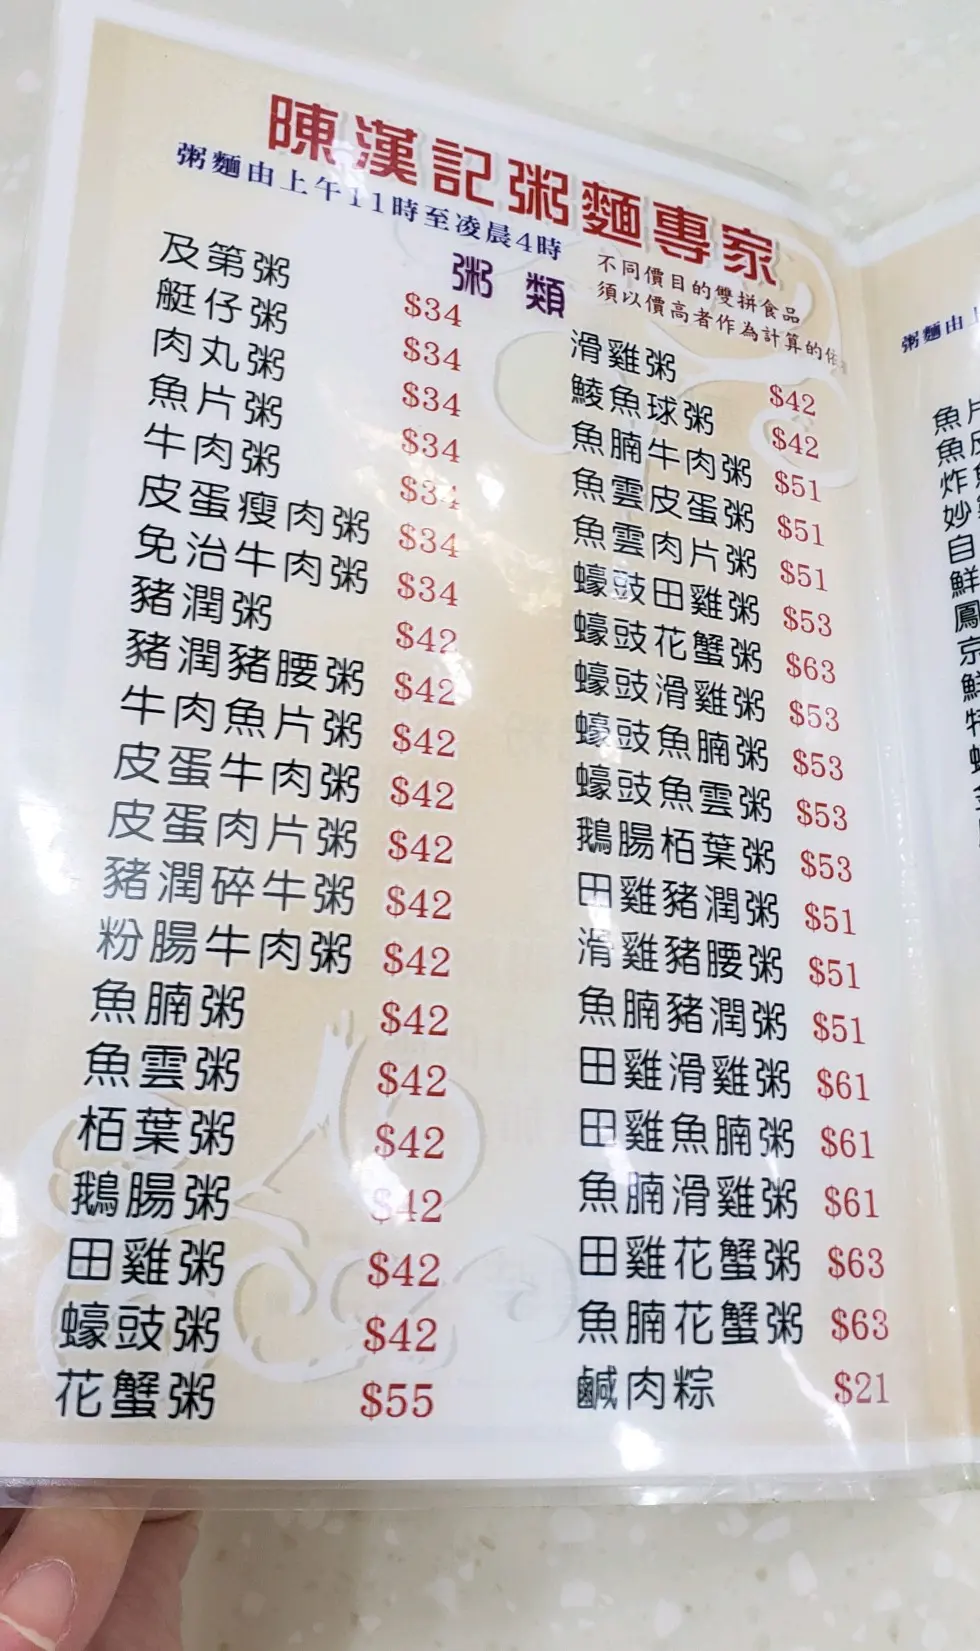 陳漢記粥麵專家
粥麵由上午11時至凌晨4時
粥類
不同價目的雙拼食品
須以價高者作為計算的
及第粥 $34
艇仔粥 $34
肉丸粥 $34
魚片粥 $34
牛肉粥 $34
皮蛋瘦肉粥 $34
免治牛肉粥 $34
豬潤粥 $42
豬潤豬腰粥 $42
牛肉魚片粥 $42
皮蛋牛肉粥 $42
皮蛋肉片粥 $42
豬潤碎牛粥 $42
粉腸牛肉粥 $42
魚腩粥 $42
魚雲粥 $42
栢葉粥 $42
鵝腸粥 $42
田雞粥 $42
蠔豉粥 $42
花蟹粥 $55
滑雞粥 $42
鯪魚球粥 $42
魚腩牛肉粥 $51
魚雲皮蛋粥 $51
魚雲肉片粥 $51
蠔豉田雞粥 $53
蠔豉花蟹粥 $63
蠔豉滑雞粥 $53
蠔豉魚腩粥 $53
蠔豉魚雲粥 $53
鵝腸栢葉粥 $53
田雞豬潤粥 $51
滑雞豬腰粥 $51
魚腩豬潤粥 $51
田雞滑雞粥 $61
田雞魚腩粥 $61
魚腩滑雞粥 $61
田雞花蟹粥 $63
魚腩花蟹粥 $63
鹹肉粽 $21
粥麵由
魚
魚
炸
妙
自
鮮
鳳
京